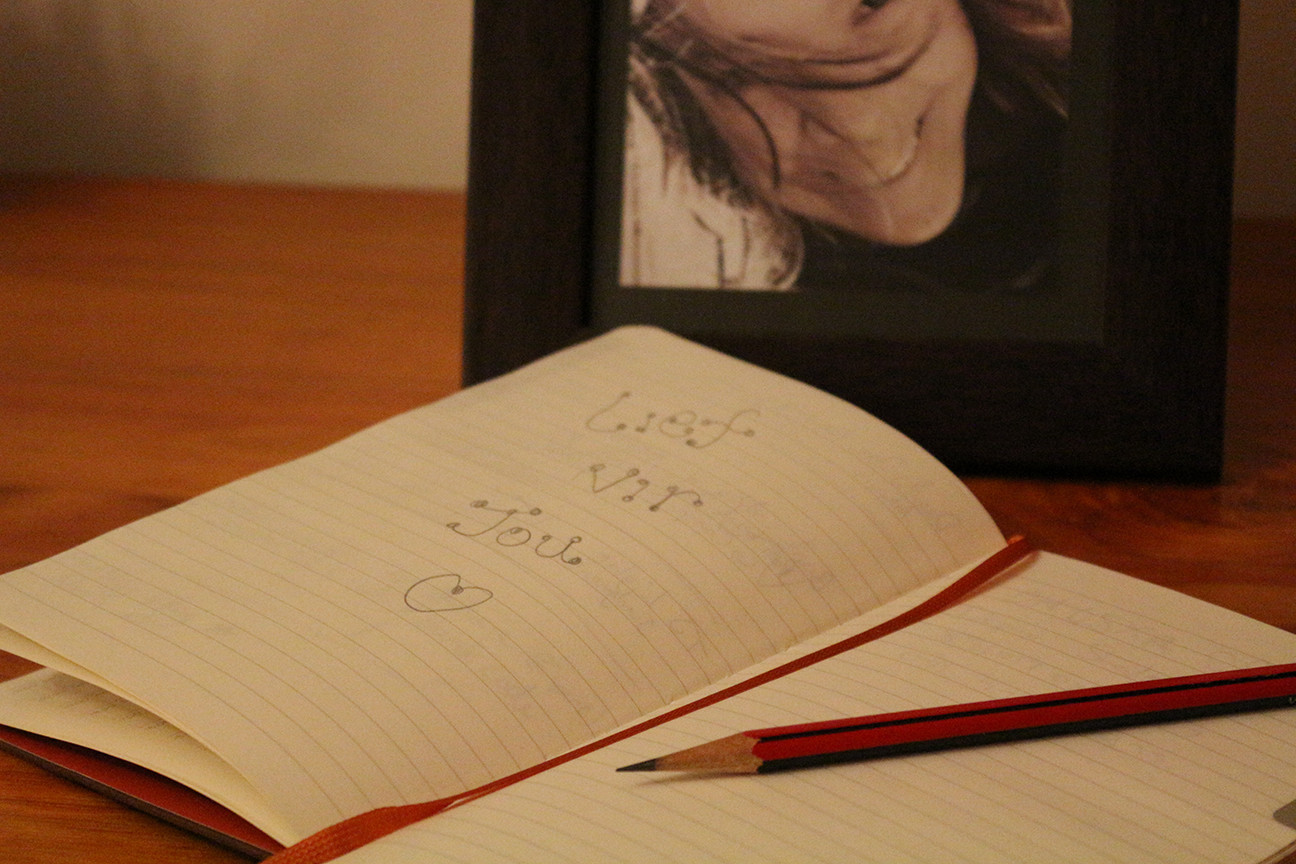 Lief
Vir
Jou